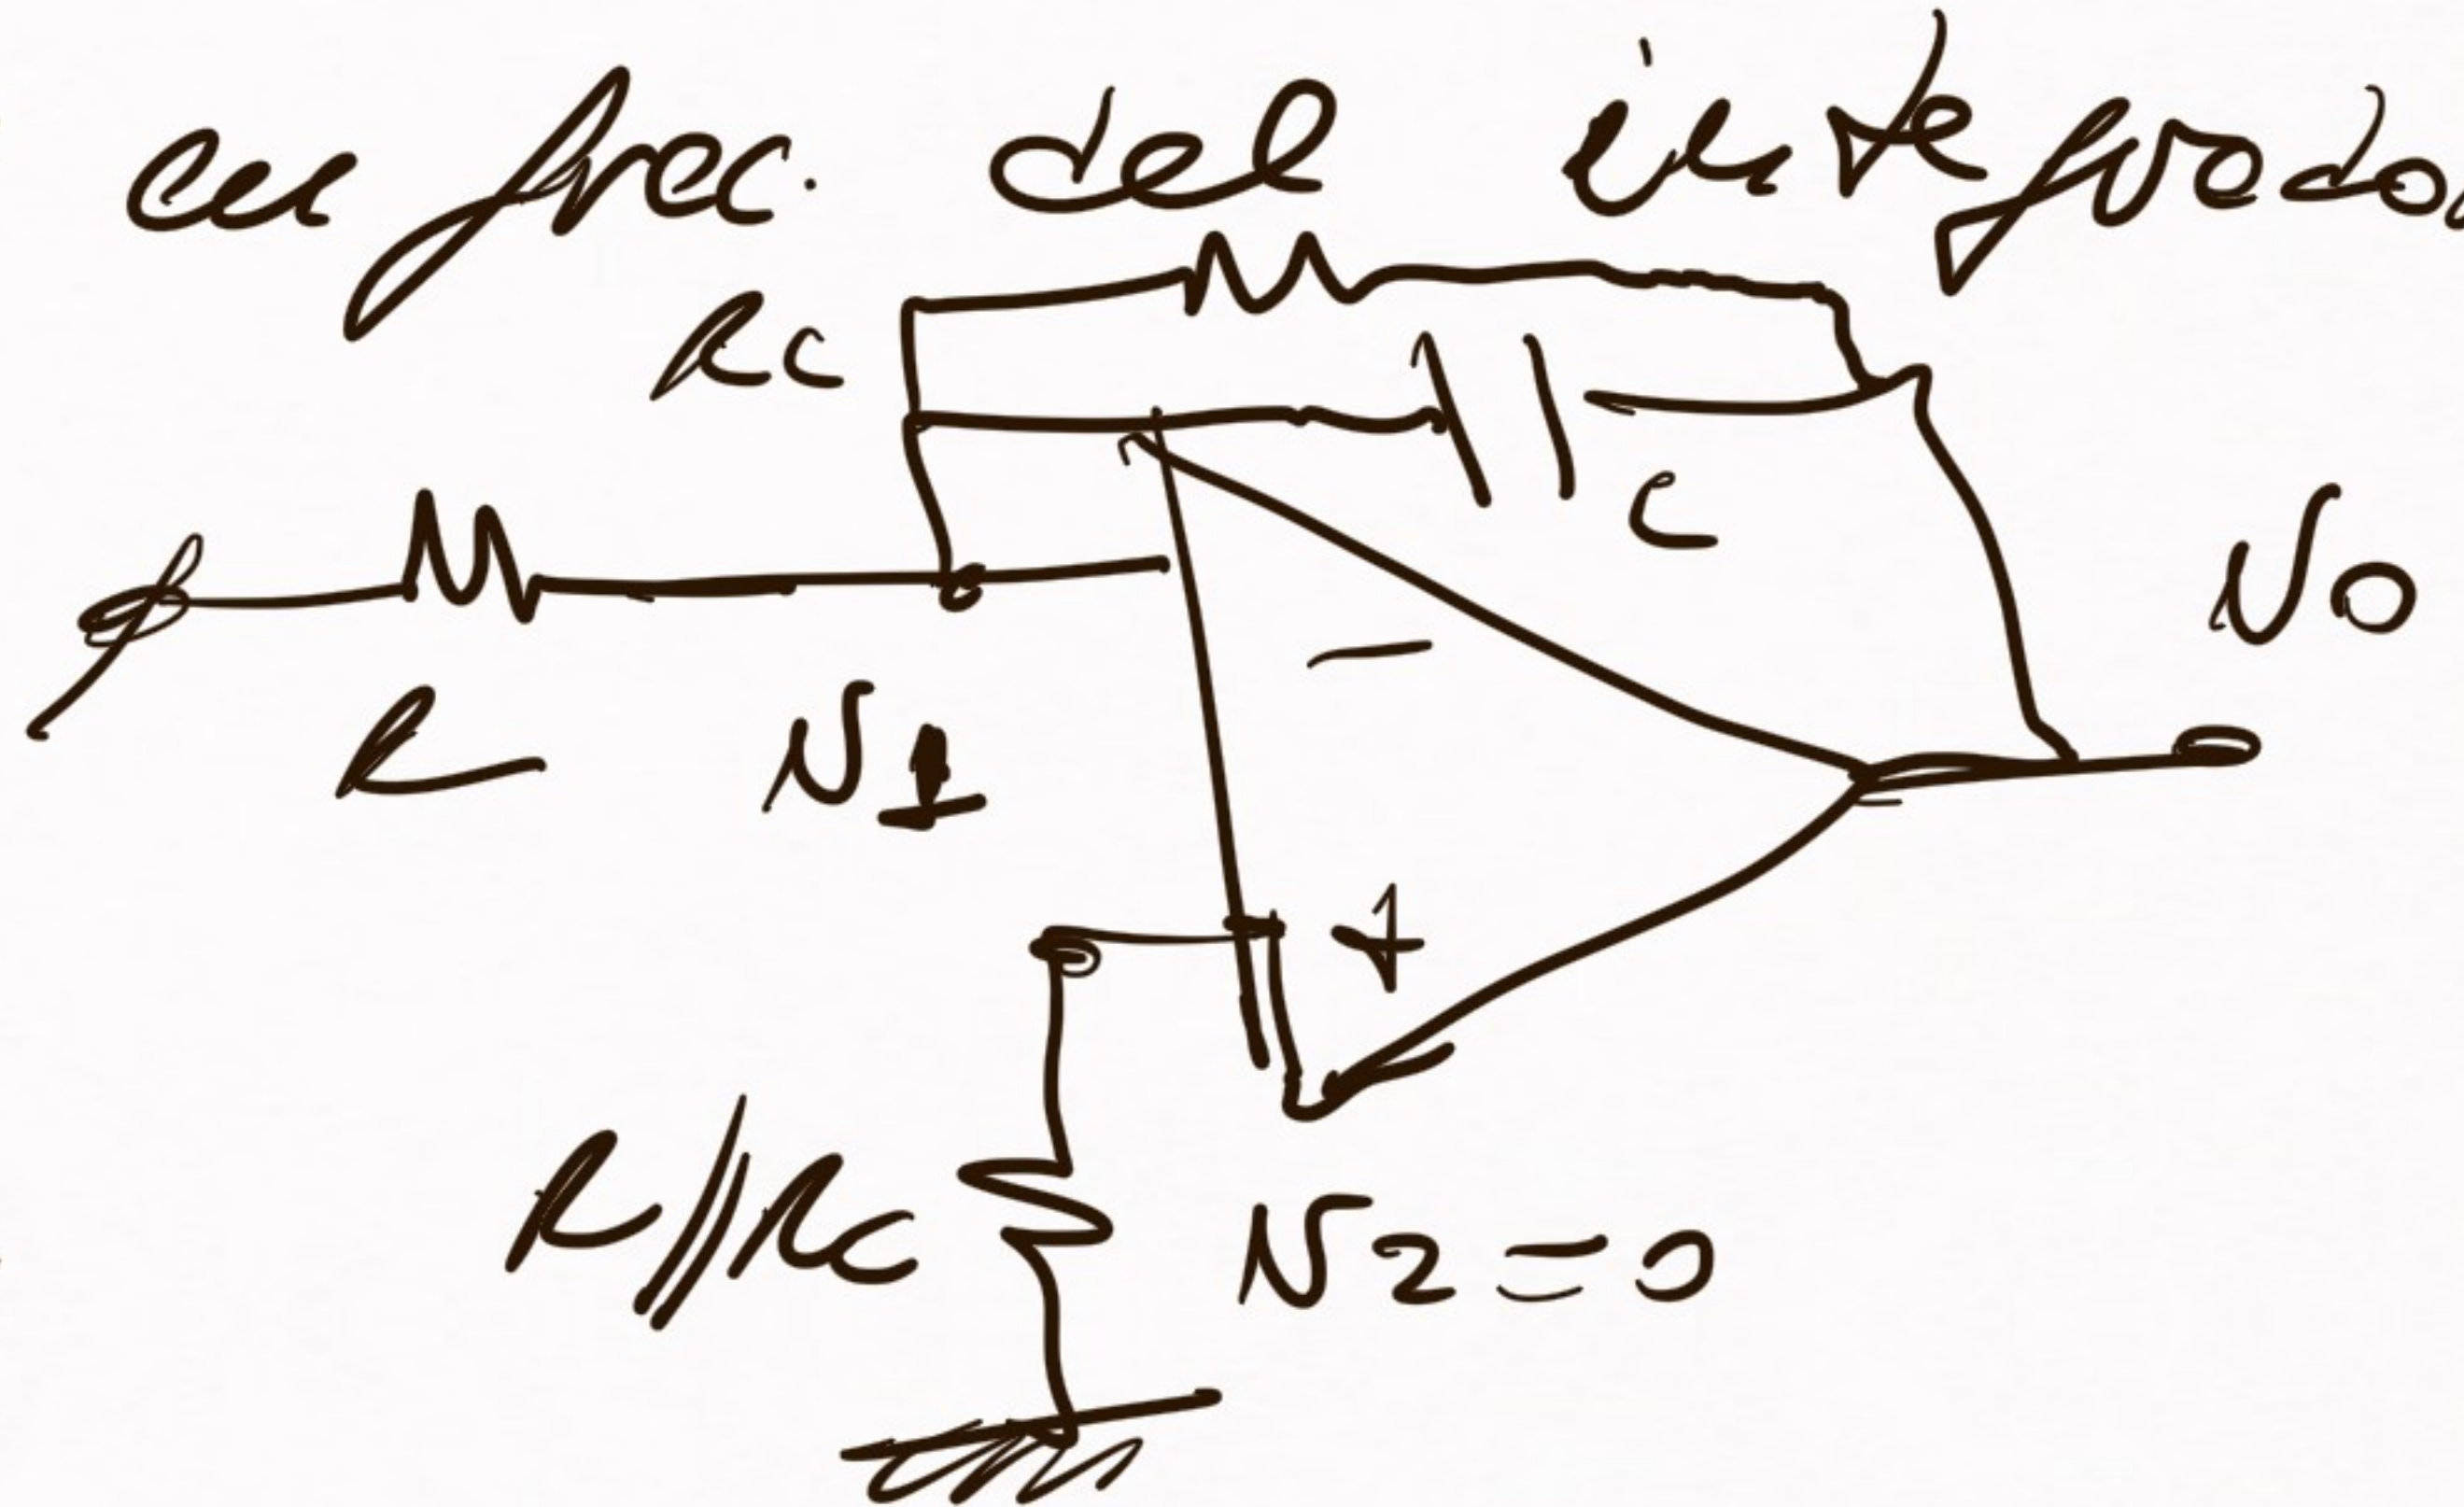 en frec. del integrador
Rc
C
Vo
R
V1
-
+
R//Rc
V2=0